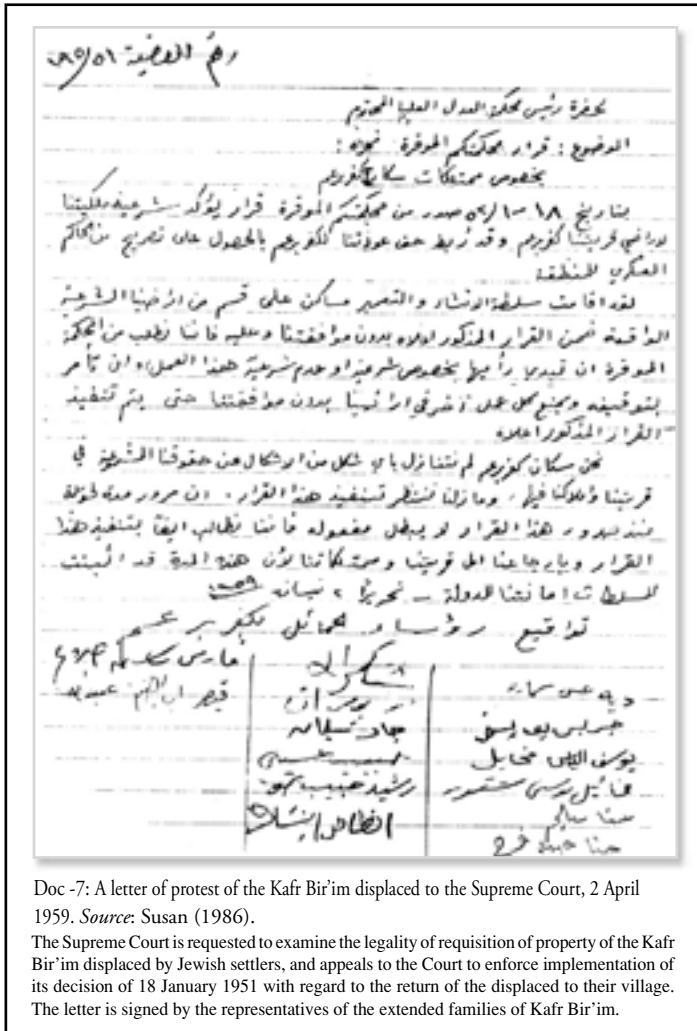 رقم القضية
لحضرة رئيس محكمة العدل العليا المحترم
الموضوع : قرار محكمتكم الموقرة
بخصوص ممتلكات سكان كفربرعم
بتاريخ ١٨-١- صدر من محكمتكم الموقرة قرار يؤكد شرعية ملكيتنا
لاراضي قريتنا كفربرعم وقد ربط حق عودتنا لكفربرعم بالحصول على تصريح من الحاكم
العسكري للمنطقة
لقد اقامت سلطة الانشاء والتعمير مساكن على قسم من ارضنا الشرعية
الواقعة ضمن القرار المذكور اعلاه بدون موافقتنا وعليه فاننا نطلب من المحكمة
الموقرة ان تبدي رأيها بخصوص شرعية او عدم شرعية هذا العمل، وان تأمر
بتوقيفه ومنع كل عمل آخر في اراضينا بدون موافقتنا حتى يتم تنفيذ
القرار المذكور اعلاه
نحن سكان كفربرعم لم نتنازل باي شكل من الاشكال عن حقوقنا الشرعية في
قريتنا واملاكنا فيها، وما زلنا ننتظر تنفيذ هذا القرار. ان مرور مدة طويلة
منذ صدور هذا القرار لا يبطل مفعوله فاننا نطالب ايضا بتنفيذ هذا
القرار وبارجاعنا الى قريتنا وممتلكاتنا لأن هذه المدة قد اثبتت
للسلطات امانتنا للدولة - تحريرا ٢ نيسان
تواقيع رؤساء حمائل كفر برعم
جريس يوسف
يوسف الياس مخايل
حنا
Doc -7: A letter of protest of the Kafr Bir'im displaced to the Supreme Court, 2 April
1959. Source: Susan (1986).
The Supreme Court is requested to examine the legality of requisition of property of the Kafr
Bir'im displaced by Jewish settlers, and appeals to the Court to enforce implementation of
its decision of 18 January 1951 with regard to the return of the displaced to their village.
The letter is signed by the representatives of the extended families of Kafr Bir'im.